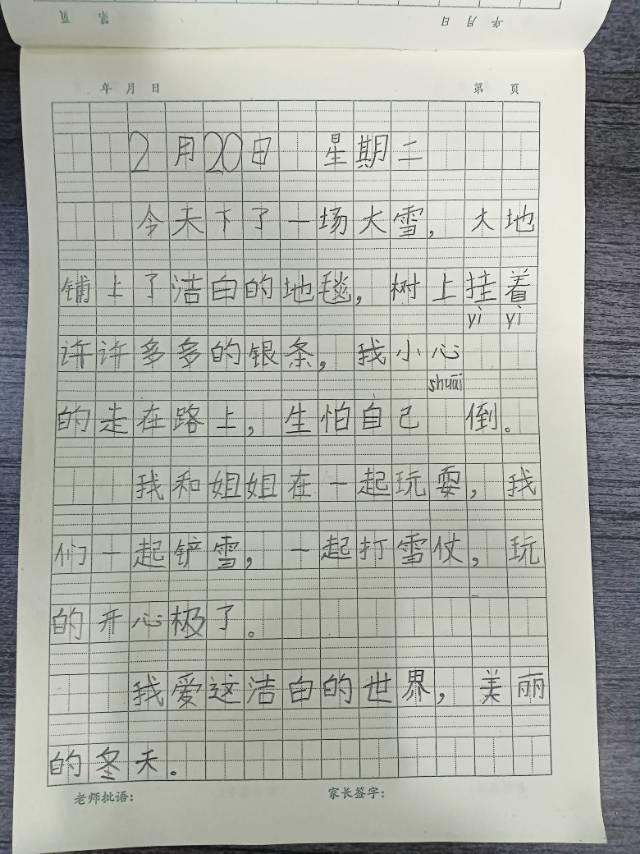 第 页
年 月 日
年 月 日 第 页
2月20日 星期二
今天下了一场大雪，大地
铺上了洁白的地毯，树上挂着
yì yì
许许多多的银条，我小心
shuāi
的走在路上，生怕自己 倒。
我和姐姐在一起玩耍，我
们一起铲雪，一起打雪仗，玩
的开心极了。
我爱这洁白的世界，美丽
的冬天。
老师批语： 家长签字：